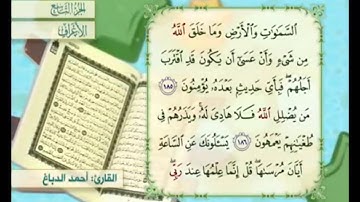 الجزء التاسع
الأعراف
السَّمَٰوَٰتِ وَالْأَرْضِ وَمَا خَلَقَ اللَّهُ
مِن شَيْءٍ وَأَنْ عَسَىٰ أَن يَكُونَ قَدِ اقْتَرَبَ
أَجَلُهُمْ فَبِأَيِّ حَدِيثٍ بَعْدَهُ يُؤْمِنُونَ ١٨٥
مَن يُضْلِلِ اللَّهُ فَلَا هَادِيَ لَهُ وَيَذَرُهُمْ فِي
طُغْيَانِهِمْ يَعْمَهُونَ ١٨٦ يَسْـَٔلُونَكَ عَنِ السَّاعَةِ
أَيَّانَ مُرْسَاهَا قُلْ إِنَّمَا عِلْمُهَا عِندَ رَبِّي
القارئ: أحمد الدباغ